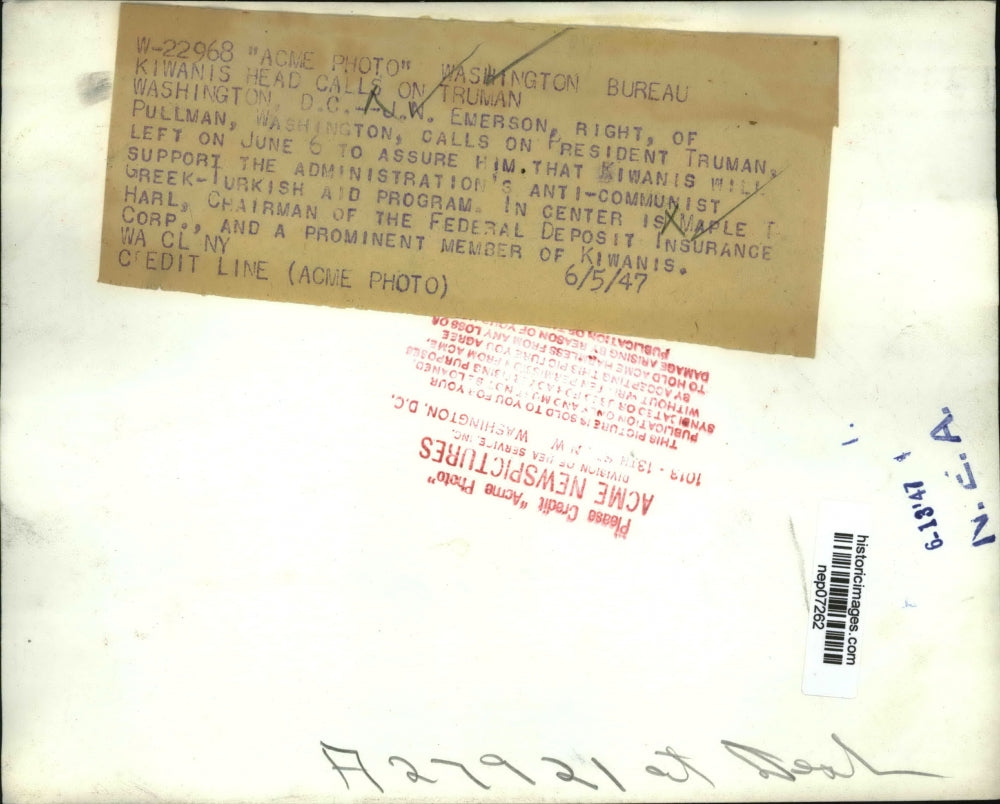 W-22968 "ACME PHOTO" WASHINGTON BUREAU
KIWANIS HEAD CALLS ON TRUMAN
WASHINGTON, D.C.--J.N. EMERSON, RIGHT, OF
PULLMAN, WASHINGTON, CALLS ON PRESIDENT TRUMAN,
LEFT ON JUNE 6 TO ASSURE HIM THAT KIWANIS WILL
SUPPORT THE ADMINISTRATION'S ANTI-COMMUNIST
GREEK-TURKISH AID PROGRAM. IN CENTER IS MAPLE T.
HARL, CHAIRMAN OF THE FEDERAL DEPOSIT INSURANCE
CORP., AND A PROMINENT MEMBER OF KIWANIS.
WA CL NY
CREDIT LINE (ACME PHOTO) 6/5/47
Please Credit "Acme Photo"
ACME NEWSPICTURES
DIVISION OF NEA SERVICE, INC.
1013 - 13TH ST. N W WASHINGTON, D.C.
THIS PICTURE IS SOLD TO YOU FOR YOUR
PUBLICATION ONLY AND MUST NOT BE LOANED,
SYNDICATED OR USED FOR ADVERTISING PURPOSES
WITHOUT WRITTEN PERMISSION FROM ACME.
BY ACCEPTING THIS PICTURE YOU AGREE
TO HOLD ACME HARMLESS FROM ANY LOSS OR
DAMAGE ARISING BY REASON OF YOUR
PUBLICATION OF
N. E. A.
6-13'47
historicimages.com
nep07262
A27921 at